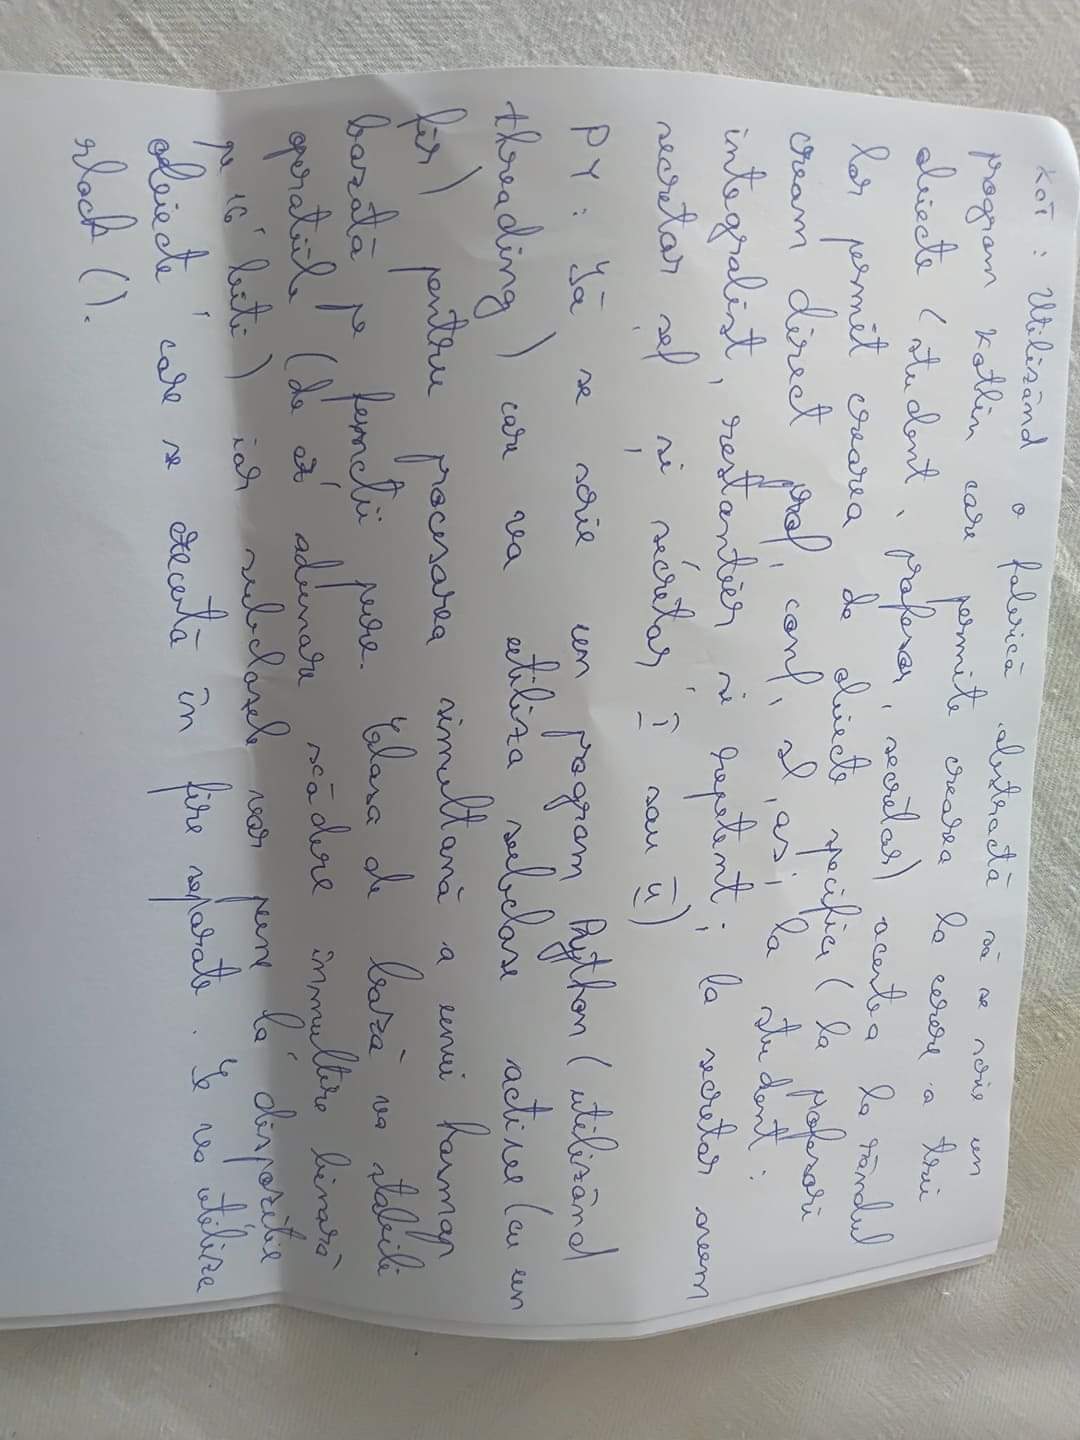 KOT: Utilizând o fabrică abstractă să se scrie un
program Kotlin care permite crearea la cerere a trei
obiecte (student, profesor, secretar) acestea la rândul
lor permit crearea de obiecte specifici (la profesori
cream direct prof, conf, sl, as; la student:
integralist, restantier si repetent; la secretar avem
secretar șef și secretar I sau II)
PY: Să se scrie un program Python (utilizând
threading) care va utiliza subclase active (cu un
fir) pentru procesarea simultană a unui
bazată pe funcții pure. Clasa de bază va stabili
operatiile (de ex adunare scădere înmultire binară
pe 16 biti) iar subclasele vor pune la dispozitie
obiecte care se execută în fire separate. Se va utiliza
rlock().